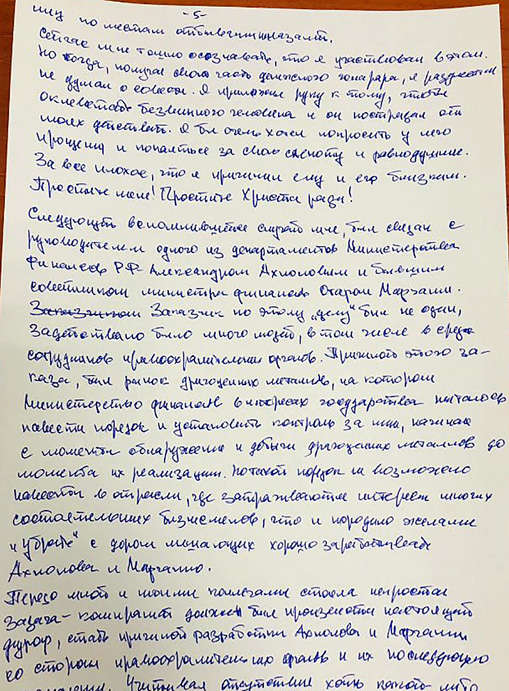 - 5 -
ниц по местам отбывания наказания.
Сейчас мне тошно осознавать, что я участвовал в этом.
Но тогда, получая свою часть денежного гонорара, я раздумал
не думал о совести. Я приложил руку к тому, чтобы
оклеветать безвинного человека и он пострадал от
моих действий. Я бы очень хотел попросить у него
прощения и покаяться за свою слепоту и равнодушие.
За все плохое, что я причинил ему и его близким.
Простите меня! Простите Христа ради!
Следующий вспомнившийся случай мне, был связан с
руководителем одного из департаментов Министерства
Финансов РФ Александром Ахполовым и бывшим
советником министра финансов Отаром Маргания.
Заказчиком Заказчик по этому „делу" был не один,
задействовано было много людей, в том числе в среде
сотрудников правоохранительных органов. Причиной этого за-
каза, был рынок драгоценных металлов, на котором
Министерство финансов в интересах государства пыталось
навести порядок и установить контроль за ним, начиная
с момента обнаружения и добычи драгоценных металлов до
момента их реализации. Но такой порядок не возможно
навести в отрасли, где затрагиваются интересы многих
состоятельных бизнесменов, что и породило желание
"убрать" с дороги мешающих хорошо зарабатывать
Ахполова и Марганию.
Передо мной и моими коллегами стояла непростая
задача - компромат должен был произвести настоящий
фурор, стать причиной разработки Ахполова и Маргании
со стороны правоохранительных органов и их последующую
Учитывая отсутствие хоть какого либо